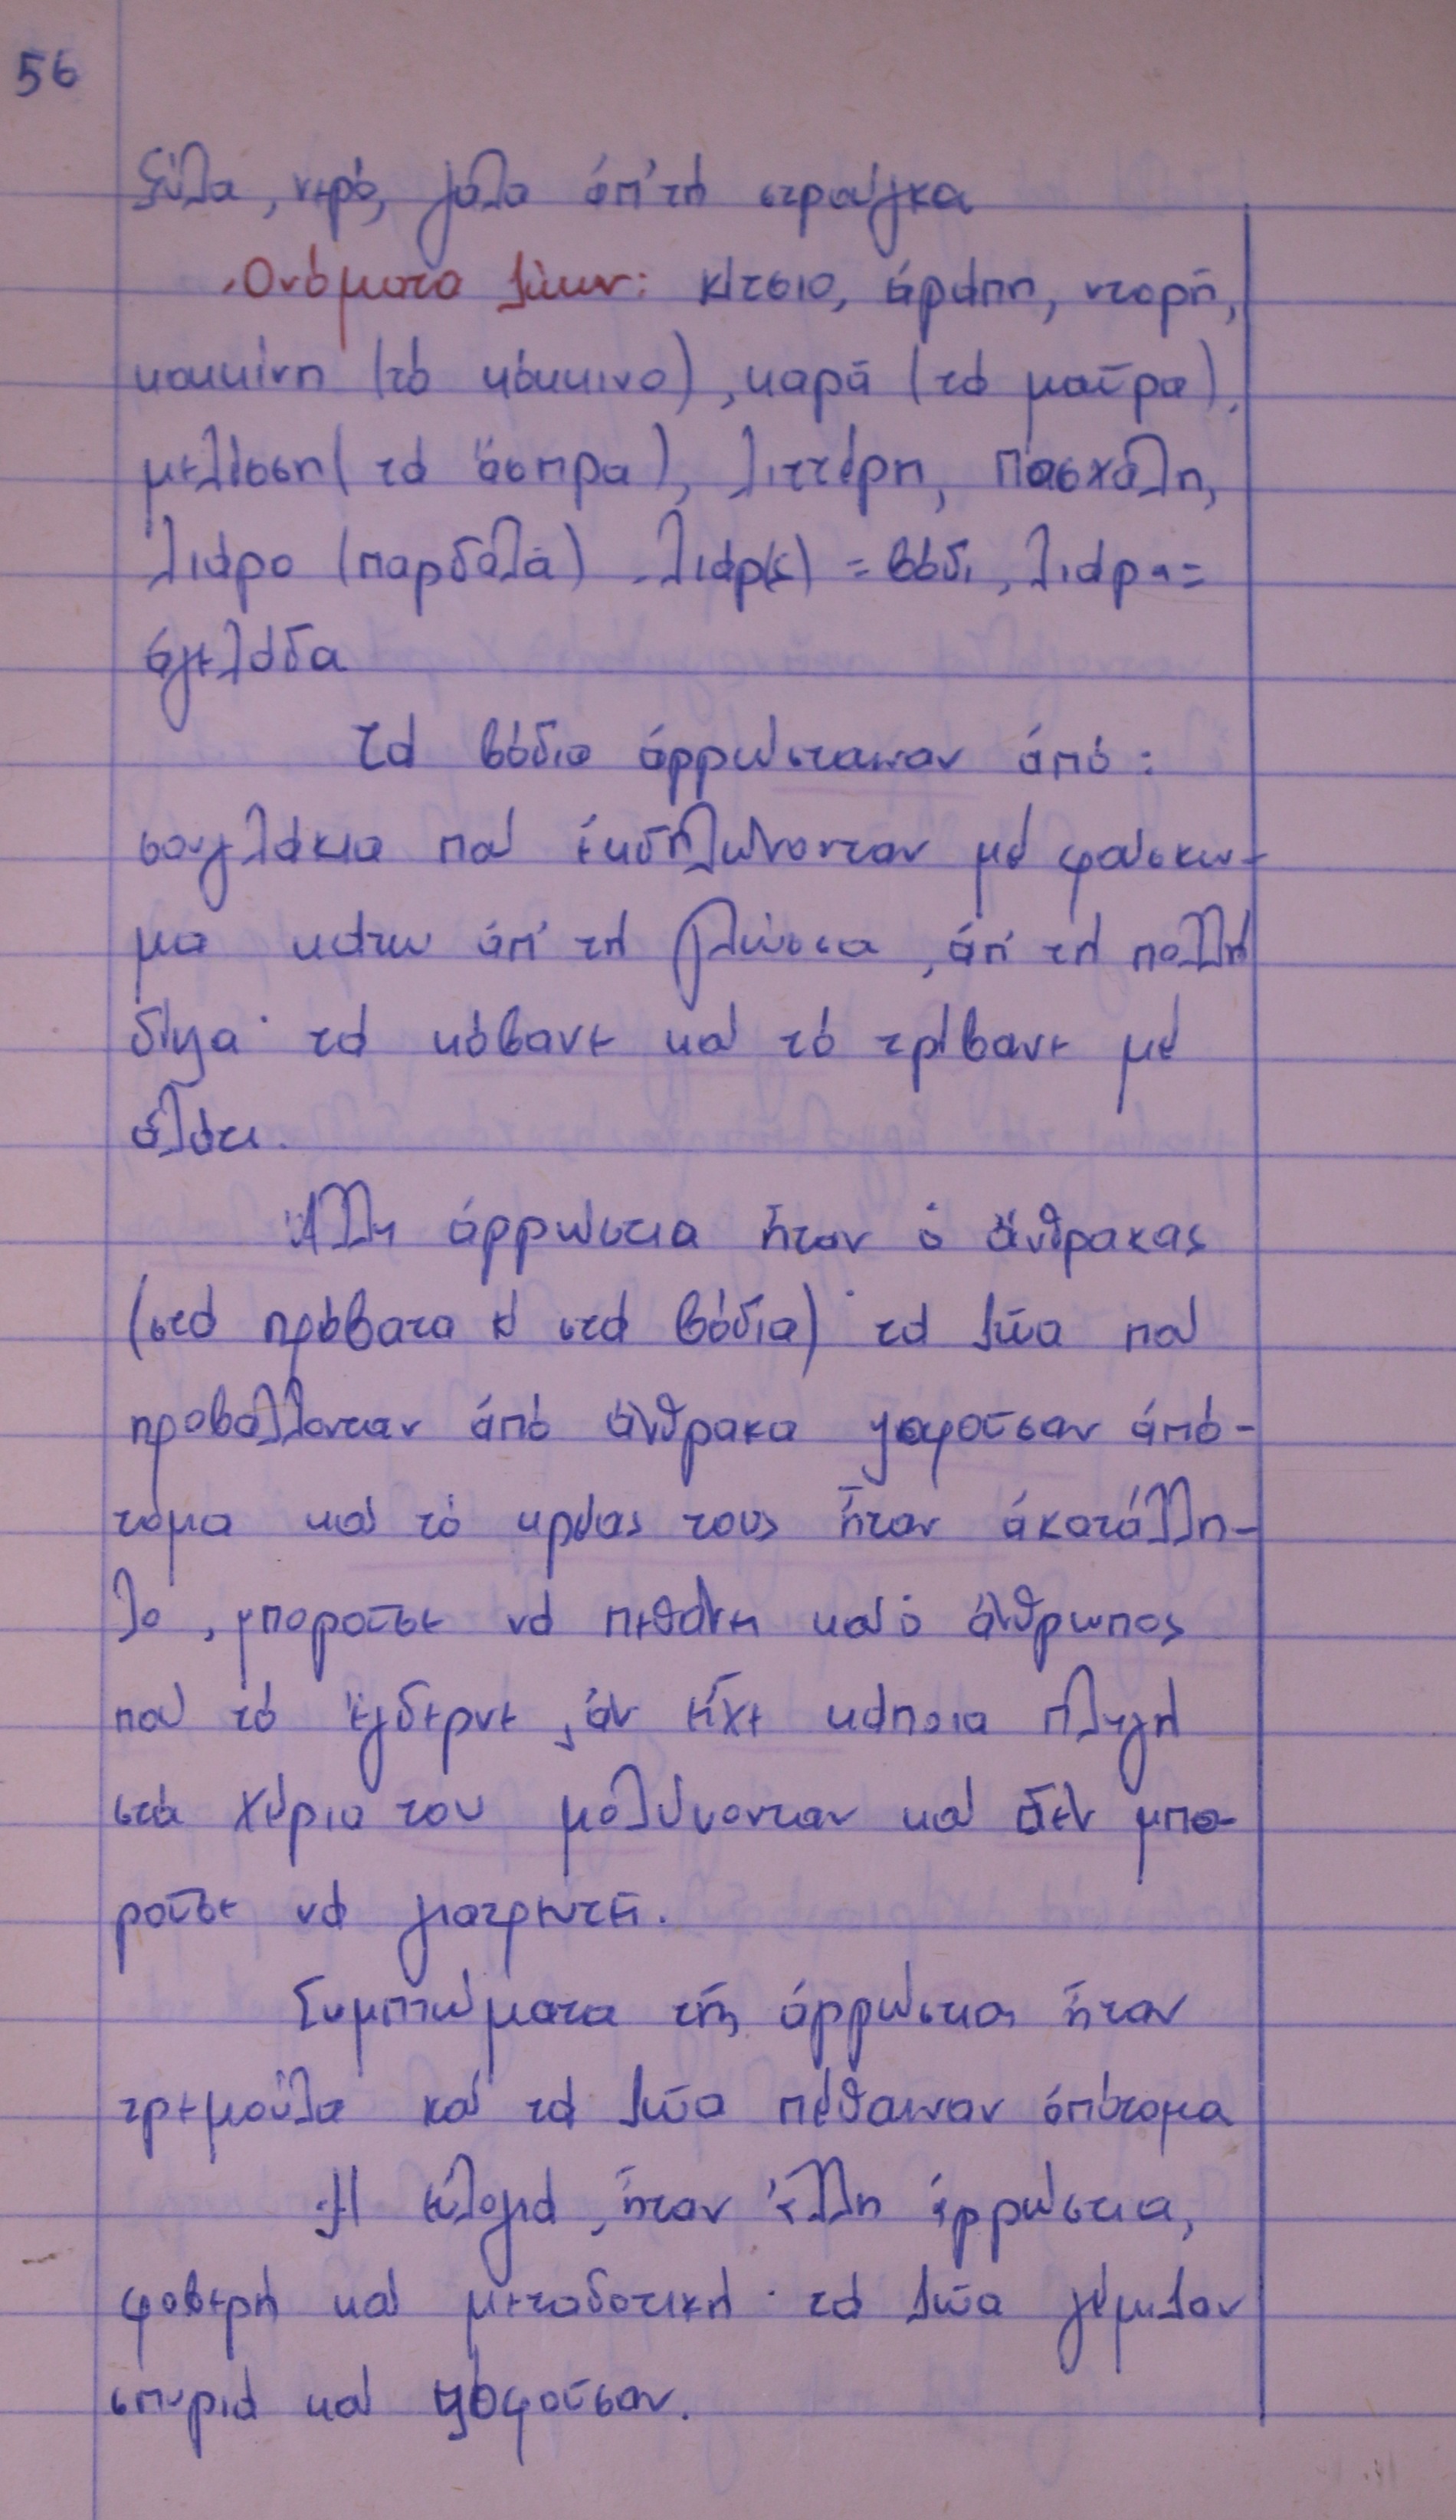 56
ξύλα, νερό, γάλα ἀπ' τή στρούγκα
Ὀνόματα ζώων: κίτσιο, ἀράπη, ντορή,
κοκκίνη (τό κόκκινο), καρᾶ (τά μαῦρα),
μελίσση (τά ἄσπρα), λιττέρη, Πασχάλη,
λιάρο (παρδαλά). λιάρ(ς) = βόδι, λιάρα =
ἀγελάδα
Τά βόδια ἀρρώσταιναν ἀπό:
σουγλάκια πού ἐκδηλώνονταν μέ φούσκω-
μα κάτω ἀπ' τή γλώσσα, ἀπ' τή πολλή
δίψα· τά κόβανε καί τό τρίβανε μέ
ἀλάτι.
Ἄλλη ἀρρώστια ἦταν ὁ ἄνθρακας
(στά πρόβατα κ' στά βόδια)· τά ζῶα πού
προβάλλονταν ἀπό ἄνθρακα ψοφοῦσαν ἀπό-
τομα καί τό κρέας τους ἦταν ἀκατάλλη-
λο, μποροῦσε νά πεθάνει καί ὁ ἄνθρωπος
πού τό ἔγδερνε, ἄν εἶχε κάποια πληγή
στά χέρια του μολύνονταν καί δέν μπο-
ροῦσε νά γιατρευτεῖ.
Συμπτώματα τῆς ἀρρώστιας ἦταν
τρεμούλα καί τά ζῶα πέθαιναν ἀπότομα
Ἡ εὐλογιά, ἦταν ἄλλη ἀρρώστια,
φοβερή καί μεταδοτική· τά ζῶα γέμιζαν
σπυριά καί ψοφοῦσαν.